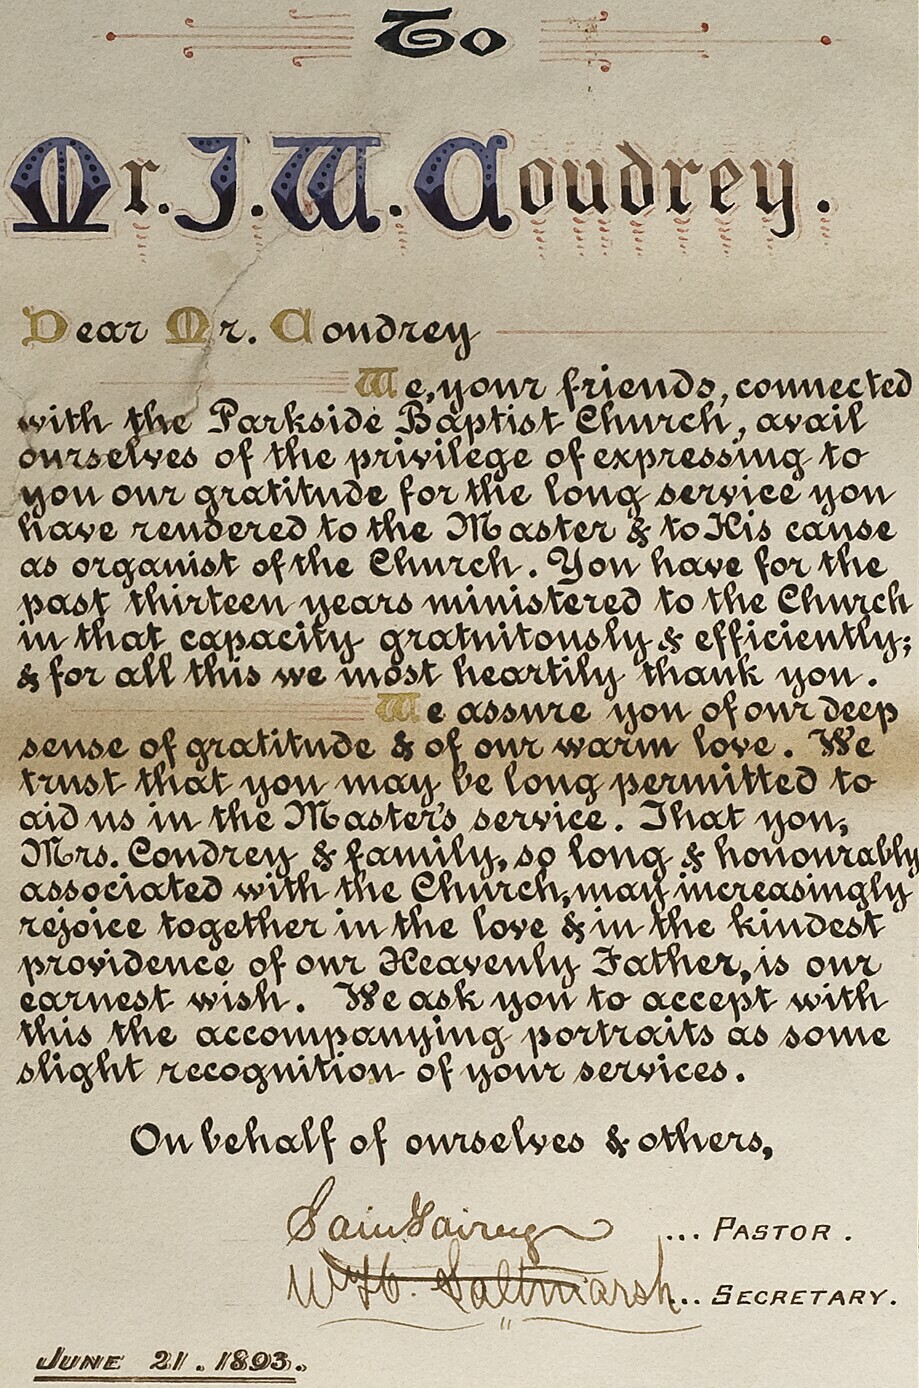 To
Mr. J. W. Coudrey.
Dear Mr. Coudrey
We, your friends, connected
with the Parkside Baptist Church, avail
ourselves of the privilege of expressing to
you our gratitude for the long service you
have rendered to the Master & to His cause
as organist of the Church. You have for the
past thirteen years ministered to the Church
in that capacity gratuitously & efficiently;
& for all this we most heartily thank you.
We assure you of our deep
sense of gratitude & of our warm love. We
trust that you may be long permitted to
aid us in the Master's service. That you,
Mrs. Coudrey & family, so long & honourably
associated with the Church, may increasingly
rejoice together in the love & in the kindest
providence of our Heavenly Father, is our
earnest wish. We ask you to accept with
this the accompanying portraits as some
slight recognition of your services.
On behalf of ourselves & others,
... PASTOR.
Saltmarsh... SECRETARY.
JUNE 21. 1893.